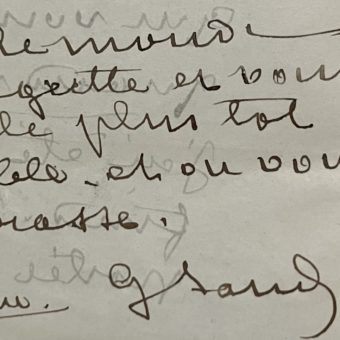 le monde
ogette et vous
le plus tôt
ble. et on vou
brasse.
G Sand